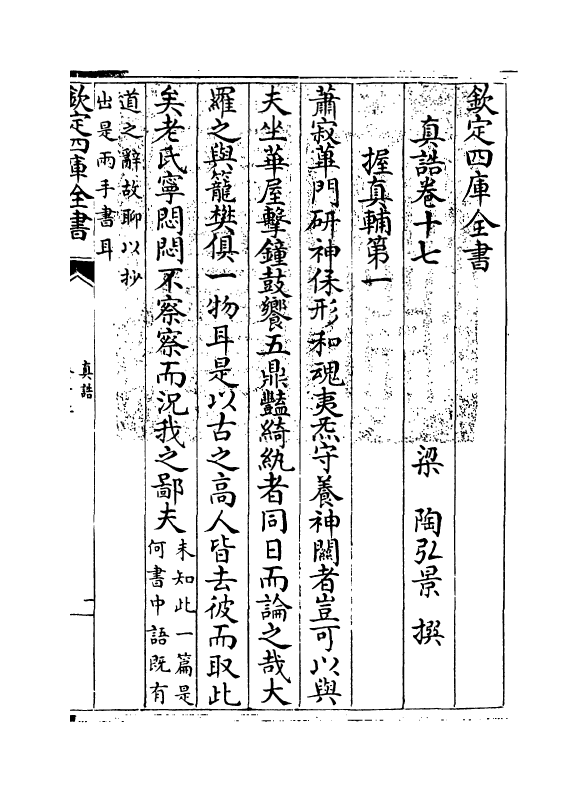 欽定四庫全書
真誥卷十七
梁 陶弘景 撰
握真輔第一
蕭寂葦門研神保形和魂夷炁守養神關者豈可以與
夫坐華屋擊鐘鼓饗五鼎豔綺紈者同日而論之哉大
羅之與籠樊俱一物耳是以古之高人皆去彼而取此
矣老氏寧悶悶不察察而況我之鄙夫
未知此一篇是
何書中語既有
道之辭故聊以抄
出是兩手書耳
欽定四庫全書
真誥
一